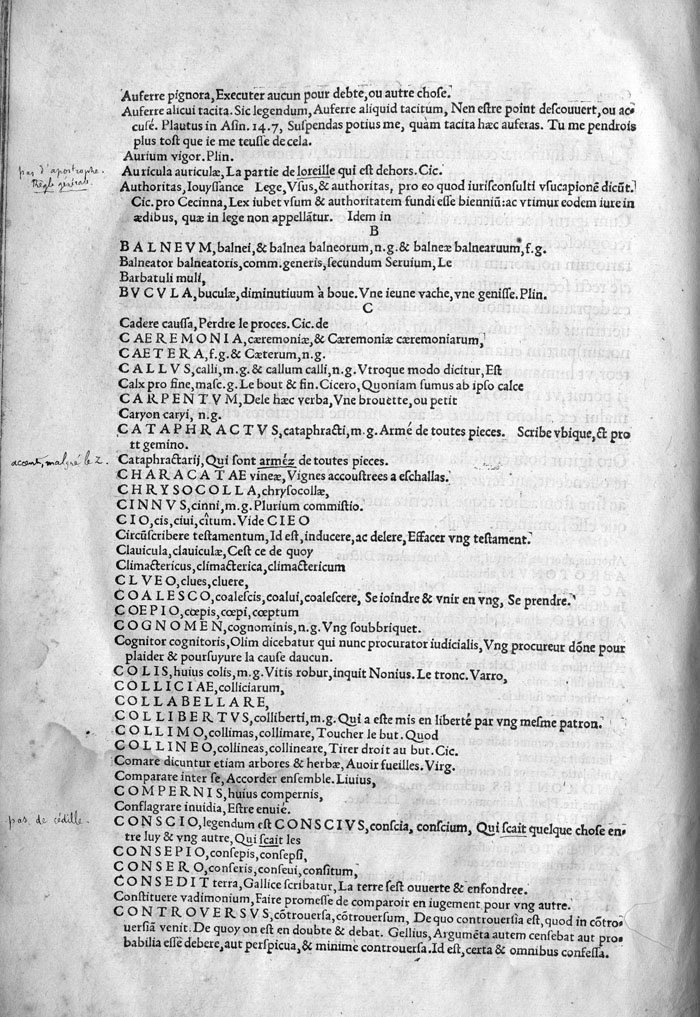 Auferre pignora, Executer aucun pour debte, ou autre chose.
Auferre alicui tacita. Sic legendum, Auferre aliquid tacitum, Nen estre point descouuert, ou ac-
cusé. Plautus in Asin. 14.7, Suspendas potius me, quàm tacita hæc auferas. Tu me pendrois
plus tost que ie me teusse de cela.
Aurium vigor. Plin.
pas d'apostrophe.
Règle générale.
Auricula auriculæ, La partie de loreille qui est dehors. Cic.
Authoritas, Iouyssance Lege, Vsus, & authoritas, pro eo quod iurisconsulti vsucapionē dicūt.
Cic. pro Cecinna, Lex iubet vsum & authoritatem fundi esse bienniū: ac vtimur eodem iure in
ædibus, quæ in lege non appellātur. Idem in
B
BALNEVM, balnei, & balnea balneorum, n.g. & balneæ balnearuum, f.g.
Balneator balneatoris, comm. generis, secundum Seruium, Le
Barbatuli muli,
BVCVLA, buculæ, diminutiuum à boue. Vne ieune vache, vne genisse. Plin.
C
Cadere caussa, Perdre le proces. Cic. de
CAEREMONIA, cæremoniæ, & Cæremoniæ cæremoniarum,
CAETERA, f.g. & Cæterum, n.g.
CALLVS, calli, m.g. & callum calli, n.g. Vtroque modo dicitur, Est
Calx pro fine, masc. g. Le bout & fin. Cicero, Quoniam sumus ab ipso calce
CARPENTVM, Dele hæc verba, Vne brouette, ou petit
Caryon caryi, n.g.
CATAPHRACTVS, cataphracti, m.g. Armé de toutes pieces. Scribe vbique, ct pro
tt gemino.
accent, malgré le z.
Cataphractarij, Qui sont arméz de toutes pieces.
CHARACATAE vineæ, Vignes accoustrees a eschallas.
CHRYSOCOLLA, chrysocollæ,
CINNVS, cinni, m.g. Plurium commistio.
CIO, cis, ciui, cîtum. Vide CIEO
Circūscribere testamentum, Id est, inducere, ac delere, Effacer vng testament.
Clauicula, clauiculæ, Cest ce de quoy
Climactericus, climacterica, climactericum
CLVEO, clues, cluere,
COALESCO, coalescis, coalui, coalescere, Se ioindre & vnir en vng, Se prendre.
COEPIO, cœpis, cœpi, cœptum
COGNOMEN, cognominis, n.g. Vng soubbriquet.
Cognitor cognitoris, Olim dicebatur qui nunc procurator iudicialis, Vng procureur dōne pour
plaider & poursuyure la cause daucun.
COLIS, huius colis, m.g. Vitis robur, inquit Nonius. Le tronc. Varro,
COLLICIAE, colliciarum,
COLLABELLARE,
COLLIBERTVS, colliberti, m.g. Qui a este mis en liberté par vng mesme patron.
COLLIMO, collimas, collimare, Toucher le but. Quod
COLLINEO, collineas, collineare, Tirer droit au but. Cic.
Comare dicuntur etiam arbores & herbæ, Auoir fueilles. Virg.
Comparare inter se, Accorder ensemble. Liuius,
COMPERNIS, huius compernis,
Conflagrare inuidia, Estre enuié.
pas de cédille.
CONSCIO, legendum est CONSCIVS, conscia, conscium, Qui scait quelque chose en-
tre luy & vng autre, Qui scait les
CONSEPIO, consepis, consepsi,
CONSERO, conseris, conseui, consitum,
CONSEDIT terra, Gallice scribatur, La terre sest ouuerte & enfondree.
Constituere vadimonium, Faire promesse de comparoir en iugement pour vng autre.
CONTROVERSVS, cōtrouersa, cōtrouersum, De quo controuersia est, quod in cōtro-
uersiā venit. De quoy on est en doubte & debat. Gellius, Argumēta autem censebat aut pro-
babilia esse debere, aut perspicua, & minimè controuersa. Id est, certa & omnibus confessa.